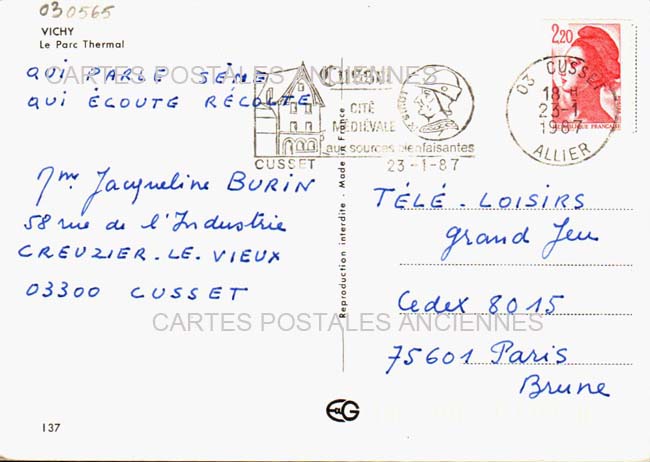 030565
VICHY
Le Parc Thermal
QUI PARLE SÈME
QUI ÉCOUTE RÉCOLTE
CARTES POSTALES ANCIENNES
CUSSET
Cusset
CITÉ
MÉDIÉVALE
aux sources bienfaisantes
23-1-87
2,20
03 CUSSET
18 H
23-1
1987
ALLIER
Mme Jacqueline BURIN
58 rue de l'Industrie
CREUZIER-LE-VIEUX
03300 CUSSET
Reproduction interdite - Made in France
TÉLÉ-LOISIRS
Grand Jeu
Cedex 8015
75601 Paris
Brune
CARTES POSTALES ANCIENNES
EG
137